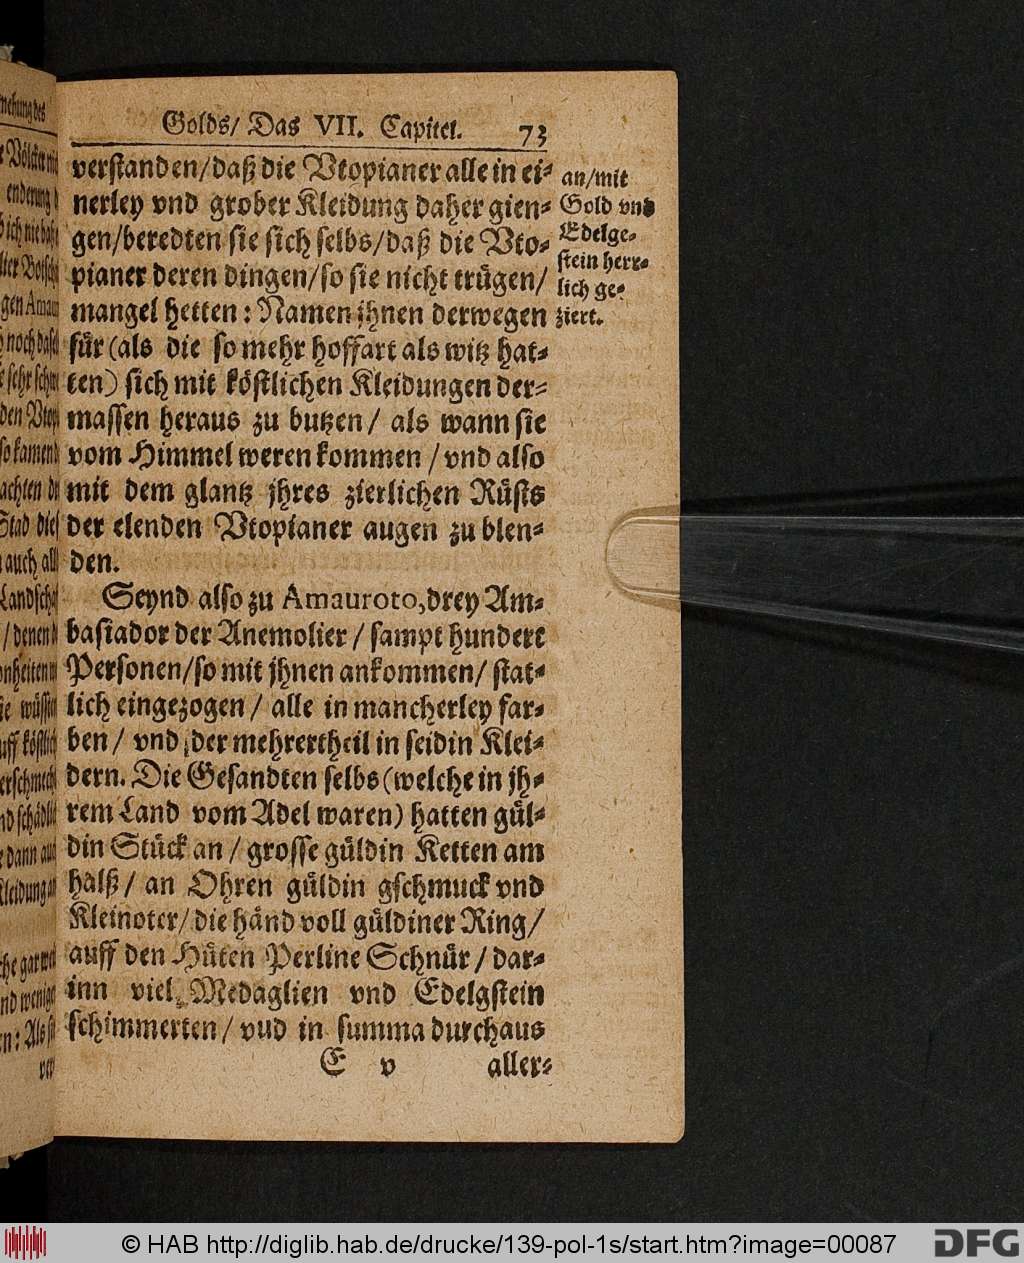 Golds/ Das VII. Capitel. 73
verstanden/daß die Vtopianer alle in ei-
nerley vnd grober Kleidung daher gien-
gen/beredten sie sich selbs/daß die Vto-
pianer deren dingen/so sie nicht trügen/
mangel hetten: Namen jhnen derwegen
für (als die so mehr hoffart als witz hat-
ten) sich mit köstlichen Kleidungen der-
massen heraus zu butzen/ als wann sie
vom Himmel weren kommen/vnd also
mit dem glantz jhres zierlichen Rüsts
der elenden Vtopianer augen zu blen-
den.
Seynd also zu Amauroto, drey Am-
basiador der Anemolier/ sampt hundert
Personen/so mit jhnen ankommen/ stat-
lich eingezogen/ alle in mancherley far-
ben/ vnd der mehrertheil in seidin Klei-
dern. Die Gesandten selbs (welche in jh-
rem Land vom Adel waren) hatten gül-
din Stück an/ grosse güldin Ketten am
halß/ an Ohren güldin gschmuck vnd
Kleinoter/die händ voll güldiner Ring/
auff den Hüten Perline Schnür/ dar-
inn viel Medaglien vnd Edelgstein
schimmerten/ vud in summa durchaus
E v aller-
an/mit
Gold vnd
Edelge-
stein herr-
lich ge-
ziert.
© HAB http://diglib.hab.de/drucke/139-pol-1s/start.htm?image=00087
DFG